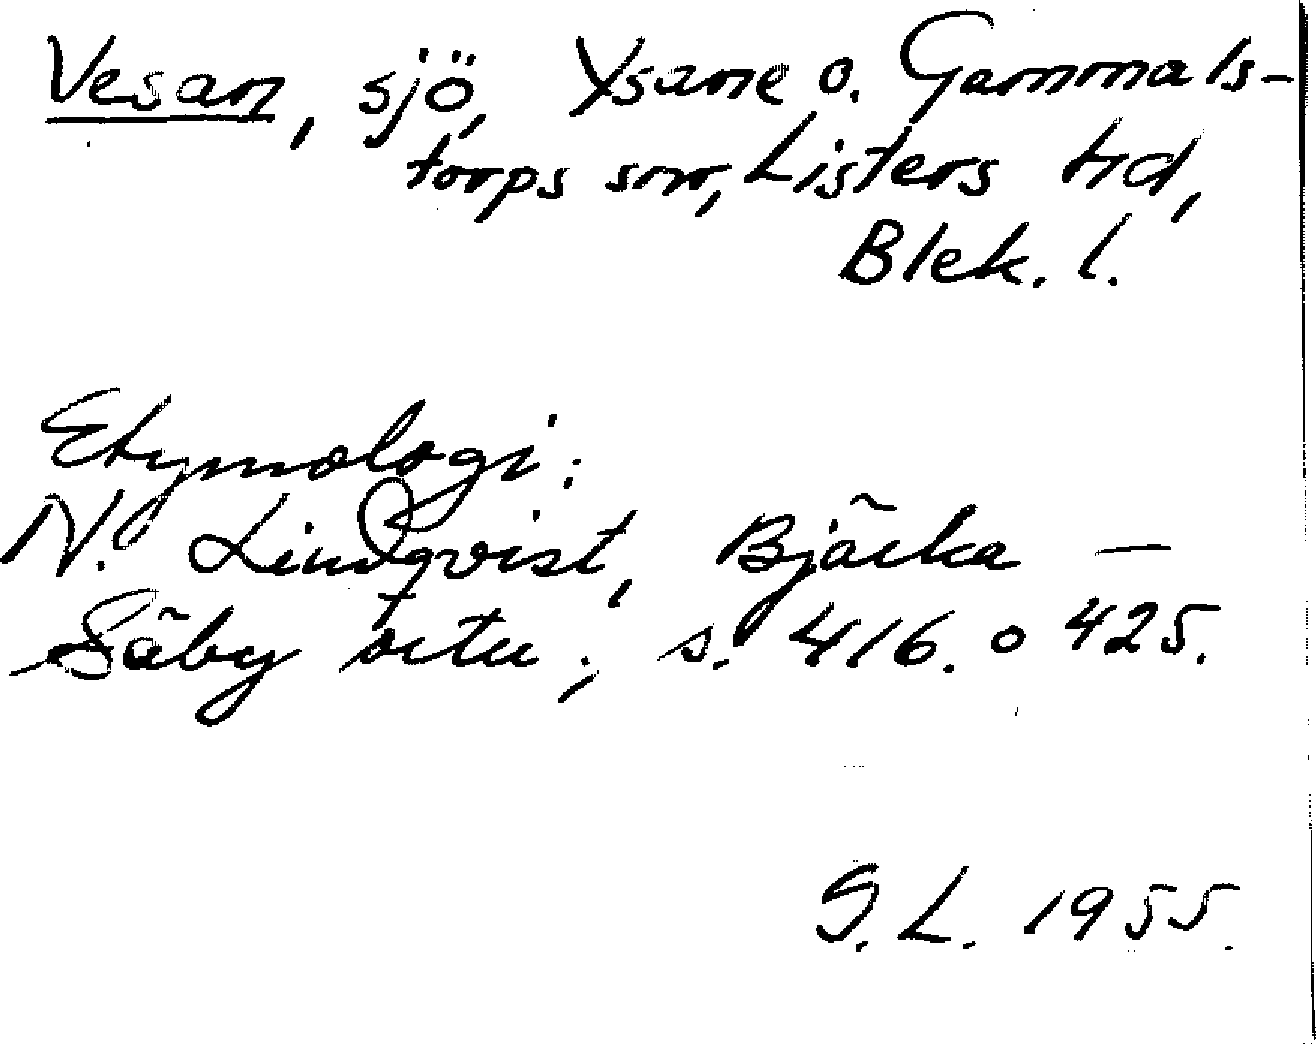 Vesan, sjö, Ysane o. Gammals-
torps snr, Listers hd,
Blek. l.
Etymologi:
N. Lindqvist, Bjärka —
Säby ortn; s. 416. o 425.
S. L. 1955.